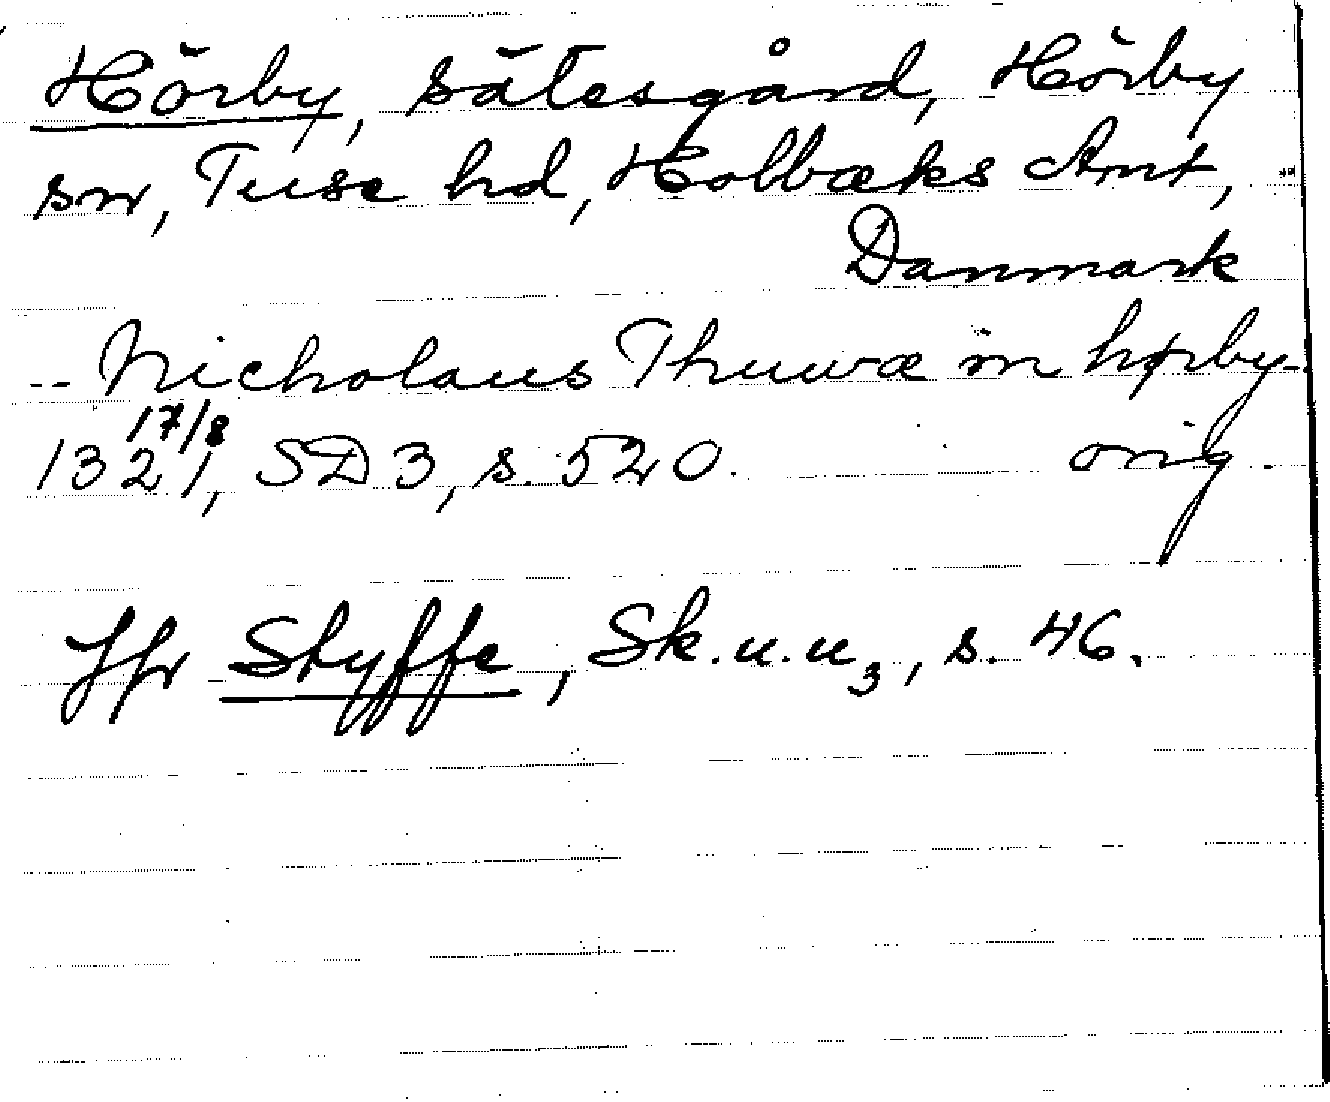 Hörby, sätesgård, Hörby
sn, Tuse hd, Holbæks Amt,
Danmark
-- Nicholaus Thuwæ in hørby--
1321 17/8, SD 3, s. 520. orig.
Jfr Styffe, Sk.u.u3, s. 46.